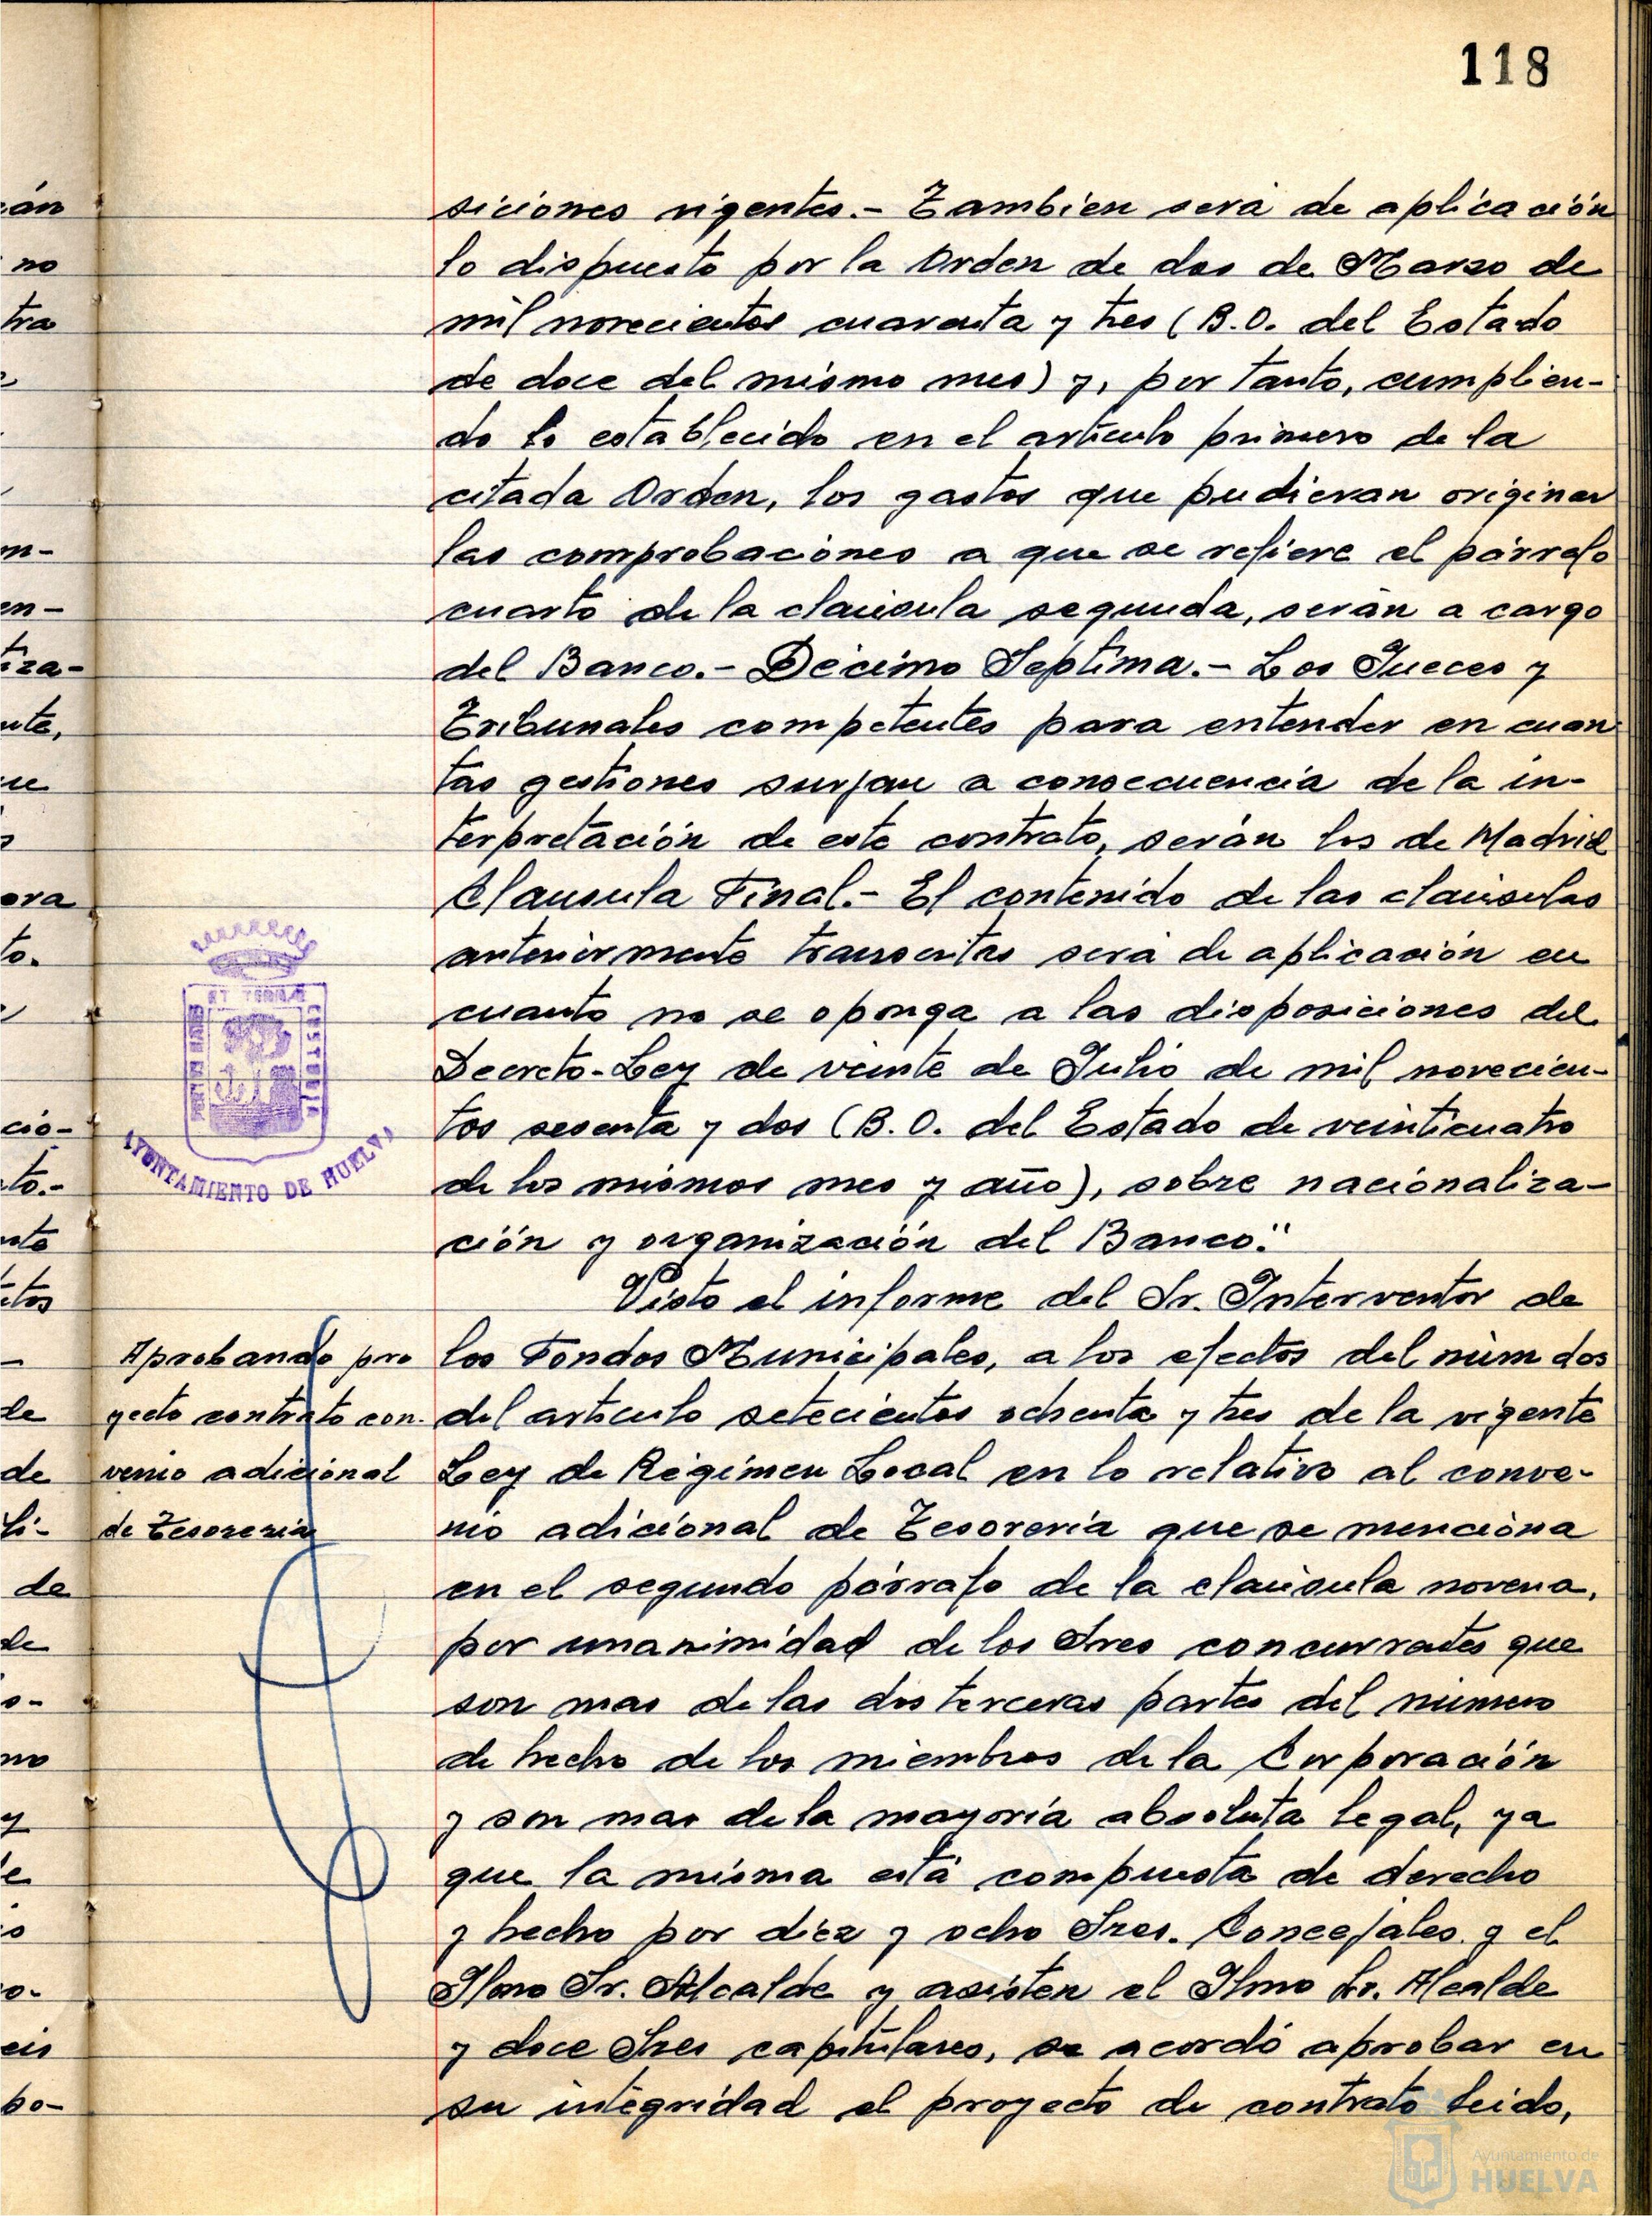 118
siciones vigentes.- Tambien será de aplicación
lo dispuesto por la Orden de dos de Marzo de
mil novecientos cuarenta y tres (B.O. del Estado
de doce del mismo mes) y, por tanto, cumplien-
do lo establecido en el artículo primero de la
citada Orden, los gastos que pudieran originar
las comprobaciones a que se refiere el párrafo
cuarto de la claúsula segunda, serán a cargo
del Banco.- Décimo Septima.- Los Jueces y
Tribunales competentes para entender en cuan
tas gestiones surjan a consecuencia de la in-
terpretación de este contrato, serán los de Madrid
Clausula Final.- El contenido de las claúsulas
anteriormente transcritas será de aplicación en
cuanto no se oponga a las disposiciones del
Decreto-Ley de veinte de Julio de mil novecien-
tos sesenta y dos (B.O. del Estado de veinticuatro
de los mismos mes y año), sobre nacionaliza-
ción y organización del Banco."
Visto el informe del Sr. Interventor de
los Fondos Municipales, a los efectos del núm dos
del artículo setecientos ochenta y tres de la vigente
Ley de Régimen Local en lo relativo al conve-
nio adicional de Tesorería que se menciona
en el segundo párrafo de la claúsula novena,
por unanimidad de los Sres concurrentes que
son mas de las dos terceras partes del número
de hecho de los miembros de la Corporación
y son mas de la mayoría absoluta legal, ya
que la misma está compuesta de derecho
y hecho por diez y ocho Sres. Concejales y el
Ilmo Sr. Alcalde y asisten el Ilmo Sr. Alcalde
y doce Sres capitulares, se acordó aprobar en
su integridad el proyecto de contrato leido,
Aprobando pro
yecto contrato con-
venio adicional
de Tesoreria
PORTUS MARIS
ET TERRAE
CUSTODIA
AYUNTAMIENTO DE HUELVA
án
no
tra
m-
en-
iza-
nte,
ue
ora
to.
ció-
to.-
nto
tos
de
de
li-
de
de
o-
no
y
o-
eis
bo-
Ayuntamiento de
HUELVA